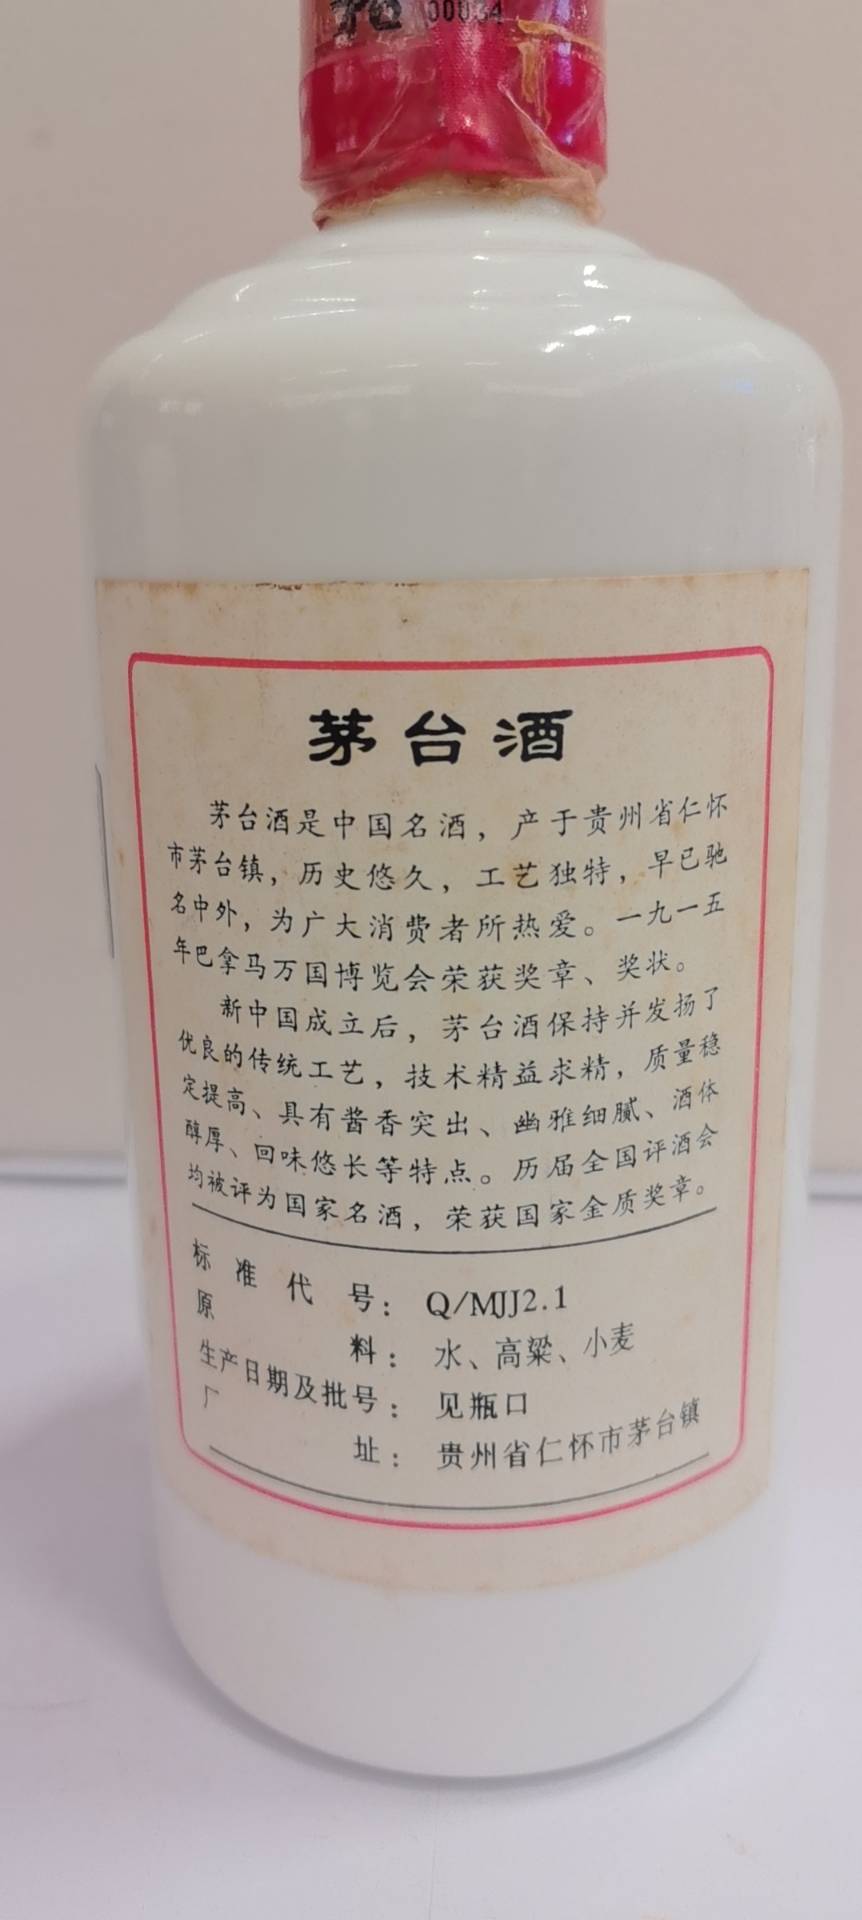 00034
茅台酒
茅台酒是中国名酒，产于贵州省仁怀
市茅台镇，历史悠久，工艺独特，早已驰
名中外，为广大消费者所热爱。一九一五
年巴拿马万国博览会荣获奖章、奖状。
新中国成立后，茅台酒保持并发扬了
优良的传统工艺，技术精益求精，质量稳
定提高、具有酱香突出、幽雅细腻、酒体
醇厚、回味悠长等特点。历届全国评酒会
均被评为国家名酒，荣获国家金质奖章。
标准代号：Q/MJJ2.1
原料：水、高粱、小麦
生产日期及批号：见瓶口
厂址：贵州省仁怀市茅台镇